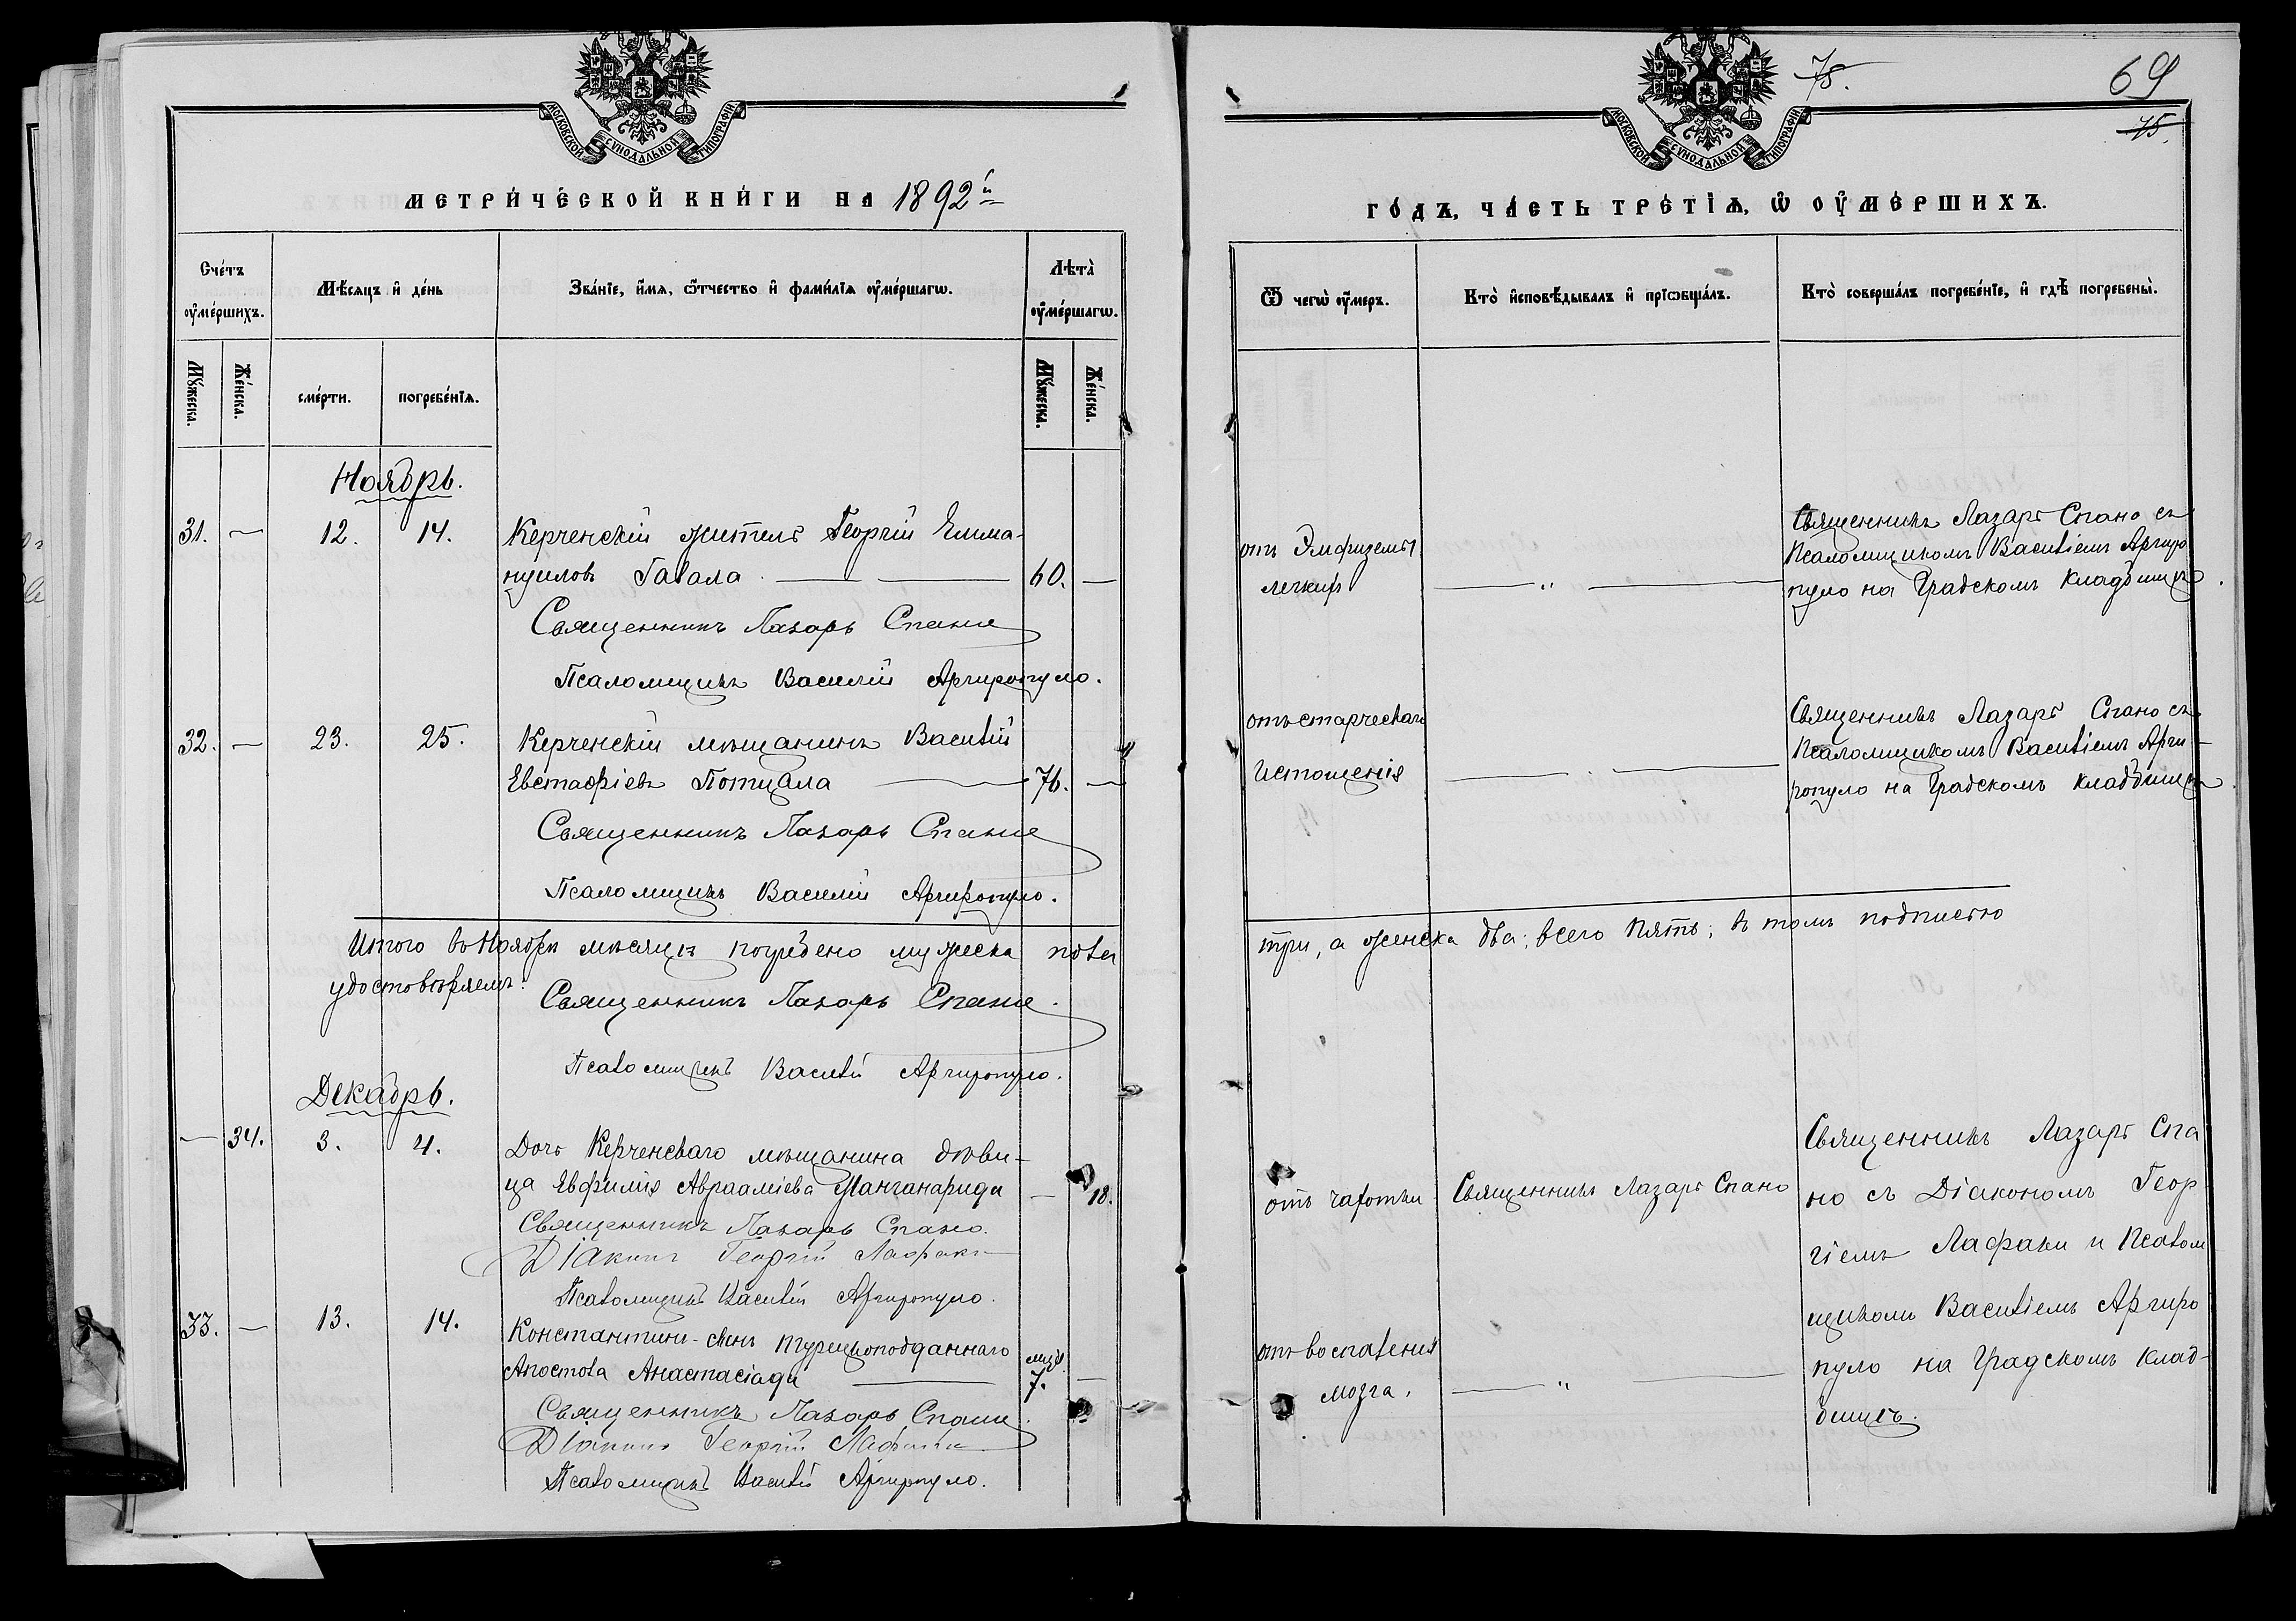 МОСКОВСКОЙ СУНОДАЛЬНОЙ ТИПОГРАФІИ
МЕТРИ́ЧЕСКОЙ КНИ́ГИ НА 1892й
Сче́тъ оу҆ме́ршихъ.
Мѣ́сяцъ и҆ де́нь
Зва́нїе, и҆́мя, ѻ҆́тчество и҆ фами́лїя оу҆ме́ршагѡ.
Лѣта̀ оу҆ме́ршагѡ.
Мꙋ́жеска.
Же́нска.
сме́рти.
погребе́нїѧ.
Мꙋ́жеска.
Же́нска.
Ноябрь.
31. — 12. 14. Керченскій житель Георгій Емма-
нуиловъ Гавала — 60. —
Священникъ Лазарь Спано
Псаломщикъ Василій Аргиропуло.
32. — 23. 25. Керченскій мѣщанинъ Василій
Евстафіевъ Потцала — 76. —
Священникъ Лазарь Спано
Псаломщикъ Василій Аргиропуло.
Итого въ Ноябрѣ мѣсяцѣ погребено мужеска пола
удостовѣряемъ:
Священникъ Лазарь Спано.
Псаломщикъ Василій Аргиропуло.
Декабрь.
— 34. 3. 4. Дочь Керченскаго мѣщанина дѣви-
ца Евфимія Авраамієва Манганариди — 18.
Священникъ Лазарь Спано.
Діаконъ Георгій Лафаки
Псаломщикъ Василій Аргиропуло.
33. — 13. 14. Константинъ-сынъ турецкоподданнаго
Апостола Анастасіади — 7. —
Священникъ Лазарь Спано.
Діаконъ Георгій Лафаки
Псаломщикъ Василій Аргиропуло.
78.
69
75.
МОСКОВСКОЙ СУНОДАЛЬНОЙ ТИПОГРАФІИ
ГО́ДЪ, ЧА́СТЬ ТРЕ́ТІѦ, Ѡ҆ ОУ҆МЕ́РШИХЪ.
Ѿ чегѡ̀ оу҆́меръ.
Кто̀ и҆сповѣ́дывалъ и҆ прїѡбща́лъ.
Кто̀ соверша́лъ погребе́нїе, и҆ гдѣ̀ погребены̀.
отъ Эмфиземы
легкихъ — " —
Священникъ Лазарь Спано съ
Псаломщикомъ Василіемъ Аргиро
пуло на Градскомъ кладбищѣ.
отъ старческаго
истощенія — . —
Священникъ Лазарь Спано съ
Псаломщикомъ Василіемъ Арги-
ропуло на Градскомъ кладбищѣ.
три, а женска два; всего пять; въ томъ подписью
отъ чахотки
Священникъ Лазарь Спано
Священникъ Лазарь Спа
но съ Діакономъ Геор
гіемъ Лафаки и Псалом
щикомъ Василіемъ Аргиро
пуло на Градскомъ клад-
бищѣ.
отъ воспаленія
мозга. — " —